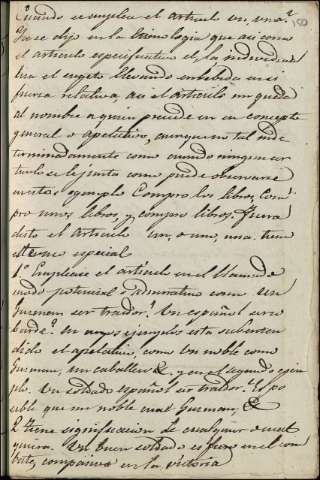 Cuando se emplea el articulo un, una?
Ya se dijo en la Etimologia que asi como
el articulo especificativo el, la individua-
liza el sugeto llevando embebida en si
fuerza relativa, asi el articulo un queda
al nombre a quien precede en su concepto
general o apelativo, aunque no tal inde
terminadamente como cuando ningun ar
ticulo se le junta como puede observarse
en este ejemplo Compro los libros, Com-
pro unos libros, y compro libros. Fuera
de esto el Articulo un, o uno, una, tiene
especial
1º Emplease el articulo en el llamado
modo potencial o admirativo como Un
Guzman ser traidor? Un español
En estos ejemplos esta suboten
dido el apelativo, como Un noble como
Guzman, un caballero &c. y en el segundo ejem
plo. Un soldado español ser traidor? Es po
sible que un noble cual Guzman, &c
2 Tiene significacion de cualquier o cual
quiera. Un buen soldado es fiero en el com
bate, compasivo en la victoria